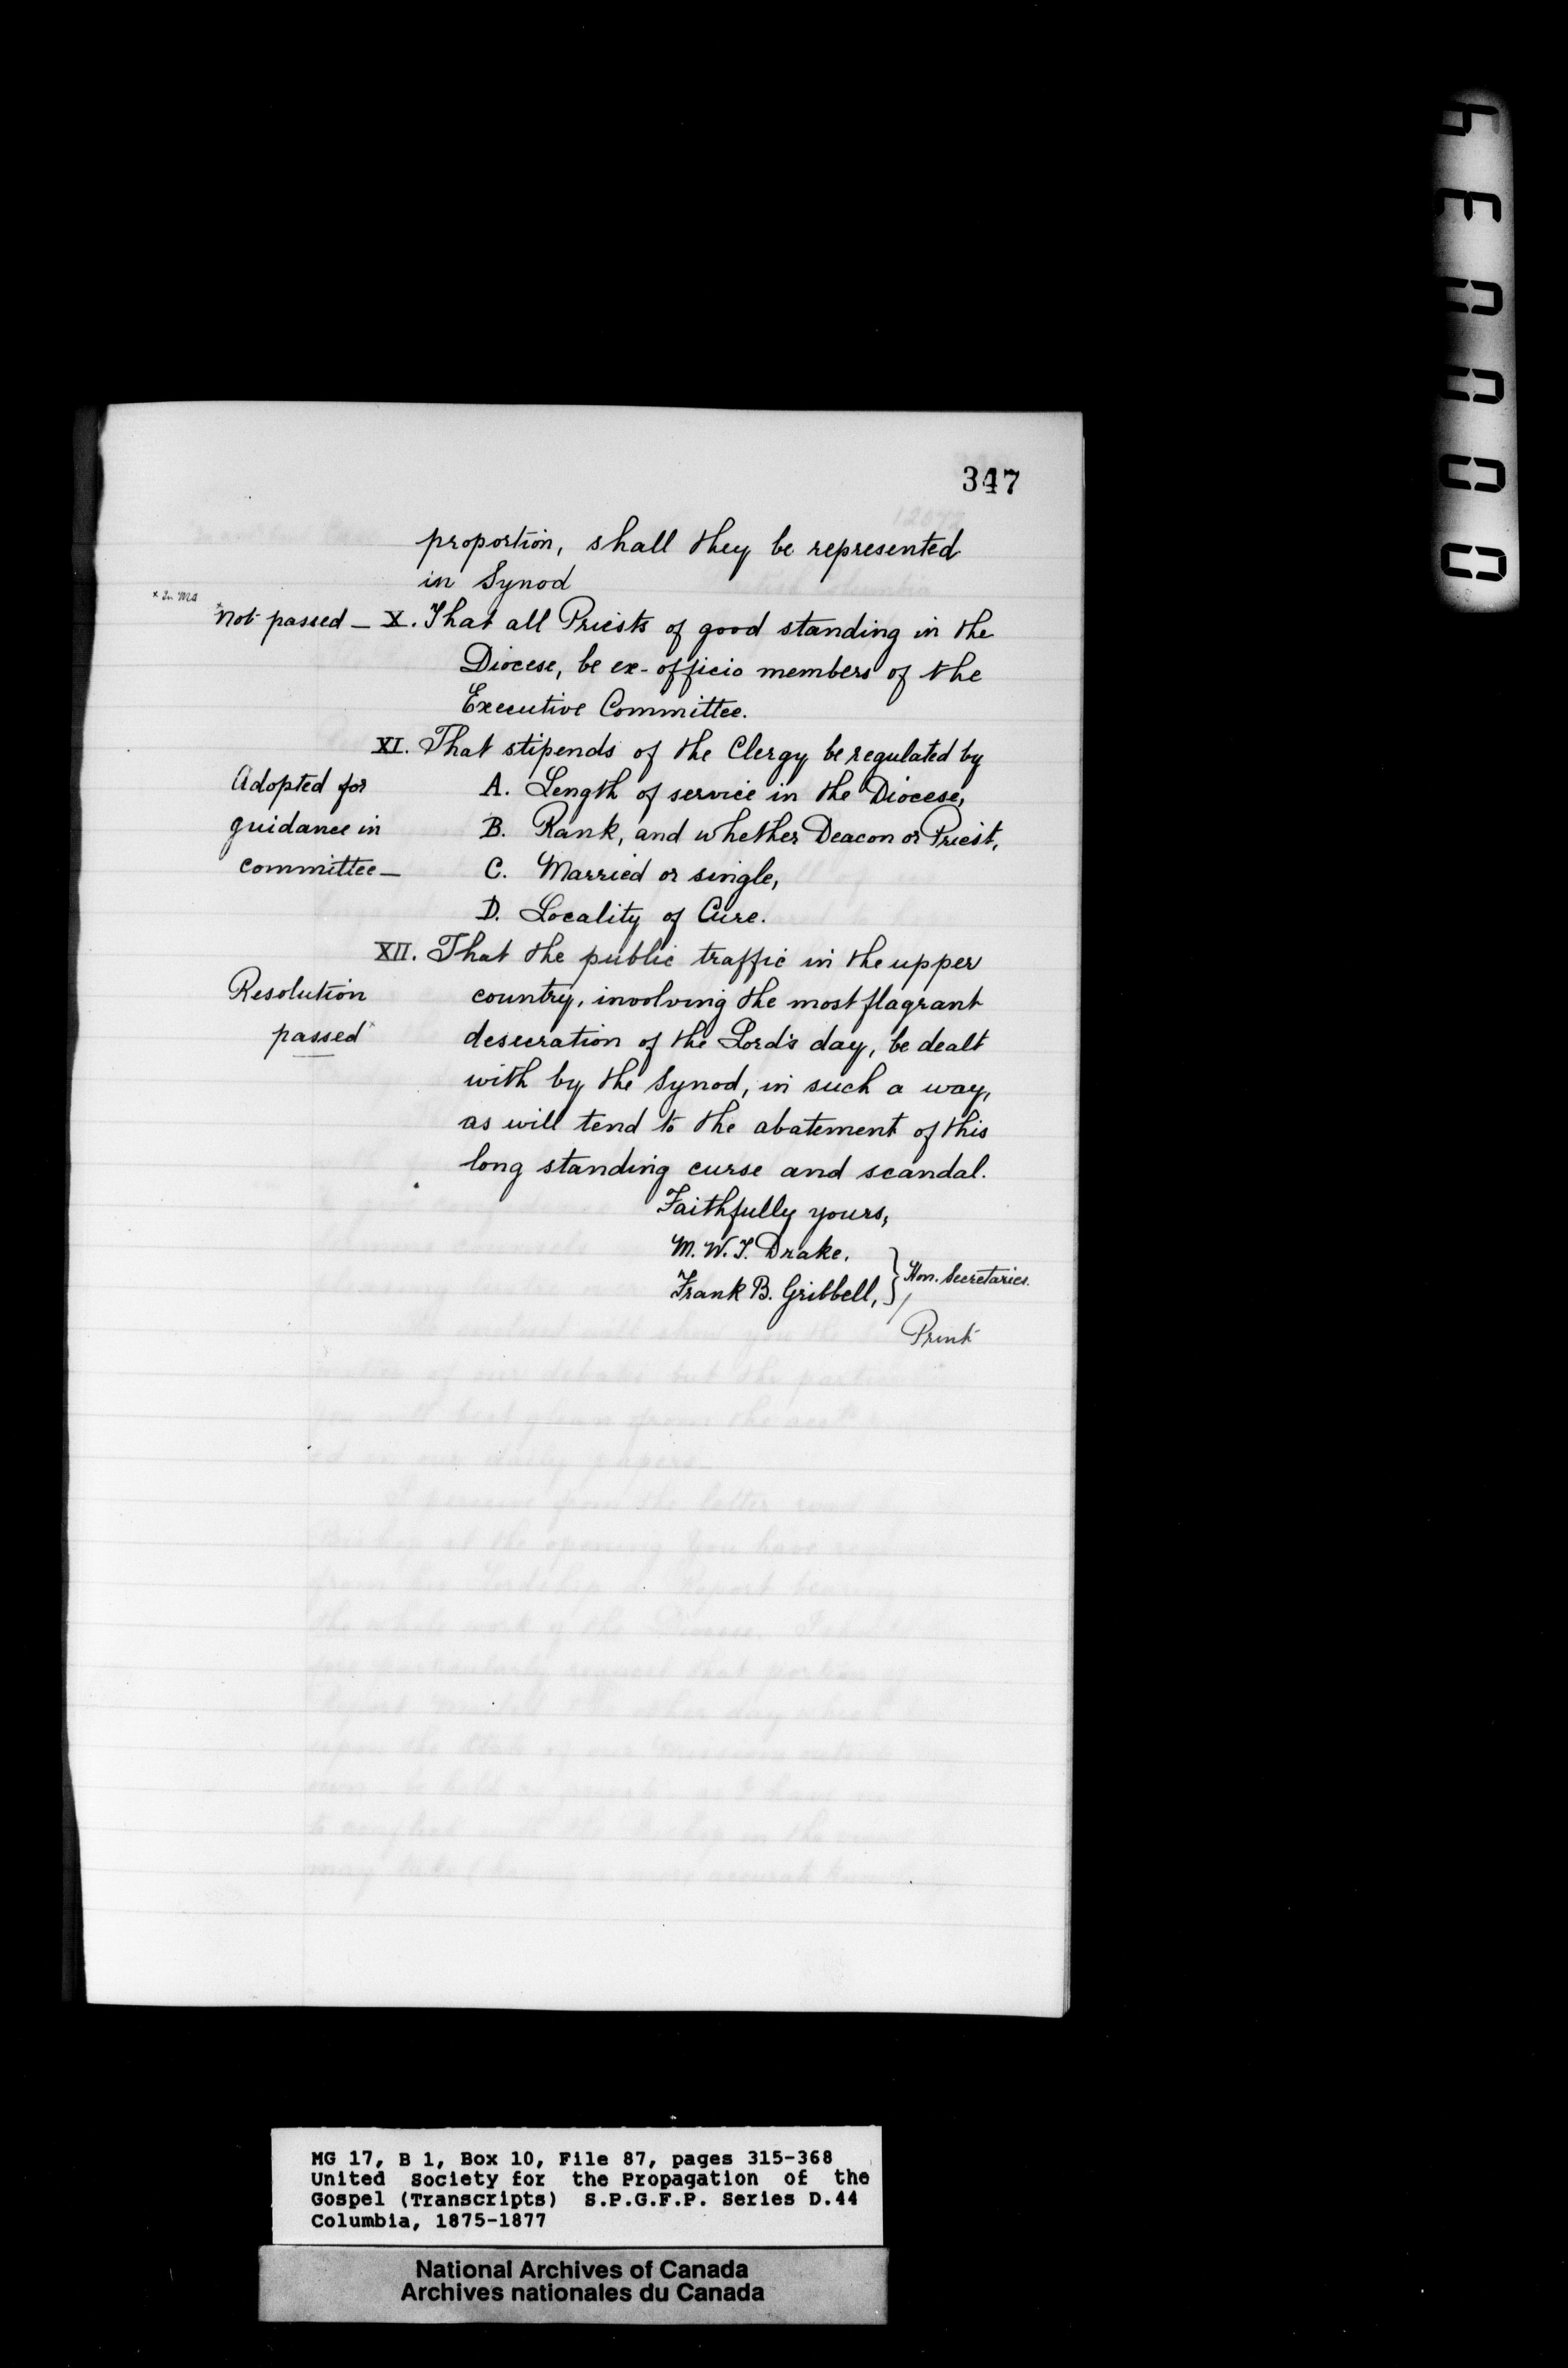 347
proportion, shall they be represented
in Synod
x In MS
xnot passed — X. That all Priests of good standing in the
Diocese, be ex-officio members of the
Executive Committee.
XI. That stipends of the Clergy be regulated by
Adopted for
guidance in
committee —
A. Length of service in the Diocese,
B. Rank, and whether Deacon or Priest,
C. Married or single,
D. Locality of Cure.
XII. That the public traffic in the upper
Resolution
passed x
country, involving the most flagrant
desecration of the Lord's day, be dealt
with by the Synod, in such a way,
as will tend to the abatement of this
long standing curse and scandal.
Faithfully yours,
M. W. T. Drake.
Frank B. Gribbell, } Hon. Secretaries.
Print
MG 17, B 1, Box 10, File 87, pages 315-368
United Society for the Propagation of the
Gospel (Transcripts) S.P.G.F.P. Series D.44
Columbia, 1875-1877
National Archives of Canada
Archives nationales du Canada